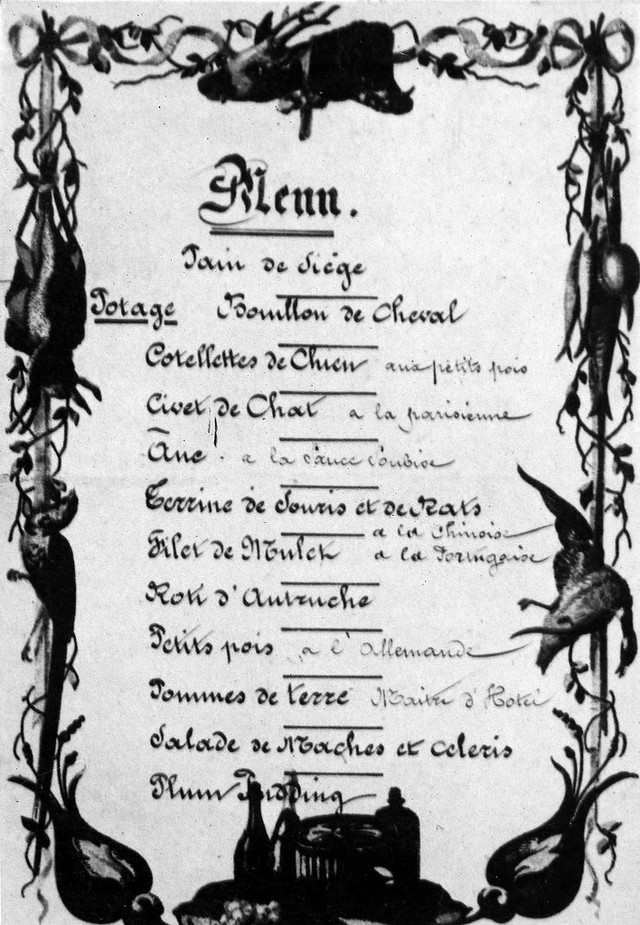 Menu.
Pain de Siège
Potage Bouillon de Cheval
Cotellettes de Chien aux petits pois
Civet de Chat a la parisienne
Ane. a la sauce soubise
Terrine de Souris et de Rats
a la Chinoise
Filet de Mulet a la Portugaise
Roti d'Autruche
Petits pois a l'Allemande
Pommes de terre Maitre d'Hotel
Salade de Maches et Celeris
Plum Pudding